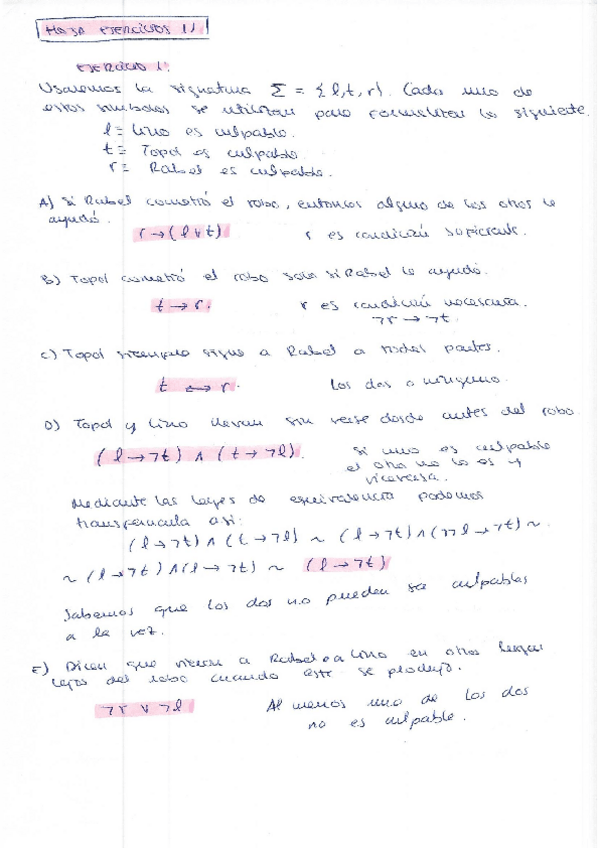 HOJA EJERCICIOS 1)
EJERCICIO 1:
Usaremos la signatura Σ = {l, t, r}. Cada uno de
estos símbolos se utilizan para formalizar lo siguiente.
l = Lino es culpable.
t = Topol es culpable.
r = Rabel es culpable.
A) Si Rabel cometió el robo, entonces alguno de los otros le
ayudó.
r → (l ∨ t) r es condición suficiente.
B) Topol cometió el robo solo si Rabel le ayudó.
t → r. r es condición necesaria.
¬r → ¬t.
C) Topol siempre sigue a Rabel a todas partes.
t ↔ r. Los dos o ninguno.
D) Topol y Lino llevan sin verse desde antes del robo.
(l → ¬t) ∧ (t → ¬l). Si uno es culpable
el otro no lo es y
viceversa.
Mediante las leyes de equivalencia podemos
así:
(l → ¬t) ∧ (t → ¬l) ~ (l → ¬t) ∧ (¬¬l → ¬t) ~
~ (l → ¬t) ∧ (l → ¬t) ~ (l → ¬t)
Sabemos que los dos no pueden ser culpables
a la vez.
E) Dicen que vieron a Rabel o a Lino en otro lugar
lejos del robo cuando este se produjo.
¬r ∨ ¬l Al menos uno de los dos
no es culpable.